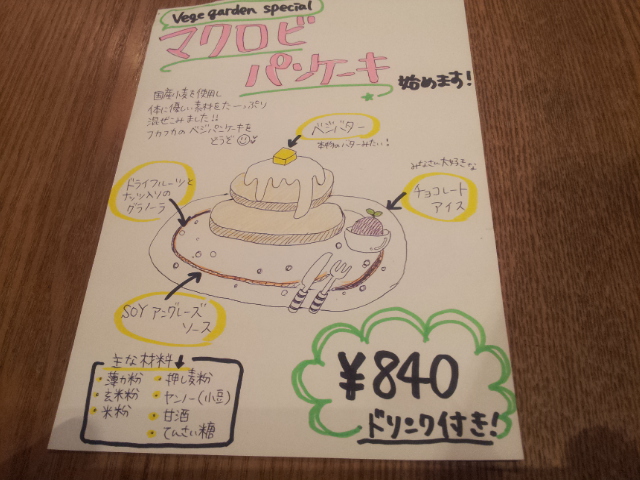 Vege garden special
マクロビ
パンケーキ
始めます!
国産小麦を使用し
体に優しい素材をたーっぷり
混ぜこみました!!
フカフカのベジパンケーキを
どうぞ
ベジバター
本物のバターみたい!
みなさん大好きな
チョコレート
アイス
ドライフルーツと
ナッツ入りの
グラノーラ
SOYアングレーズ
ソース
主な材料
薄力粉
玄米粉
米粉
押し麦粉
ヤンノー(小豆)
甘酒
てんさい糖
¥840
ドリンク付き!